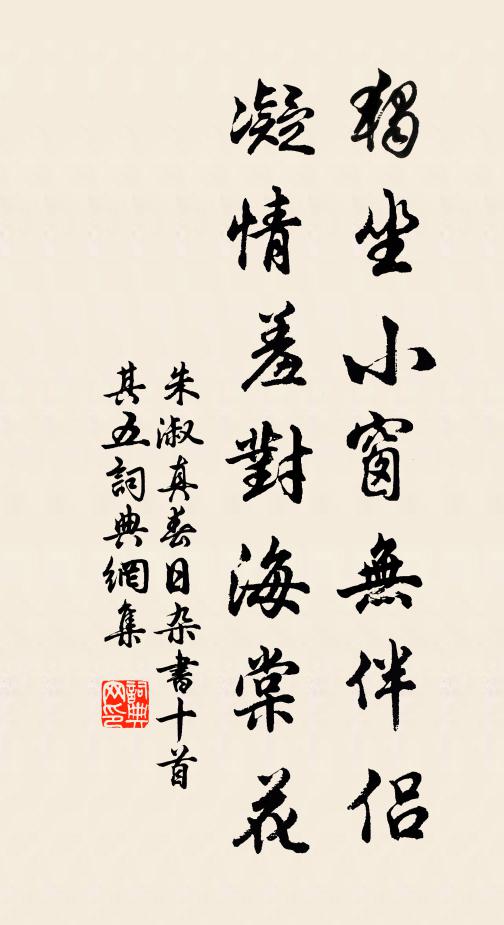 獨坐小窗無伴侶
凝情羞對海棠花
朱淑真春日杂書十首
其五詞典網集
詞典网印